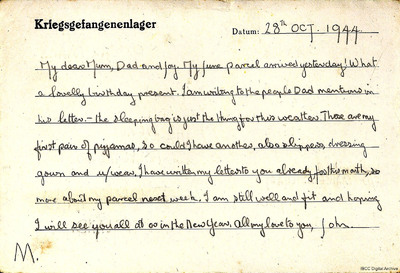 Kriegsgefangenenlager
Datum: 28th OCT. 1944
My dear Mum, Dad and Joy. My June parcel arrived yesterday! What
a lovelly birthday present. I am writing to the people Dad mentions in
his letter. – the sleeping bag is just the thing for this weather. Those are my
first pair of pyjamas, so could I have another, also slippers, dressing
gown and u/wear. I have written my letters to you already for this month, so
more about my parcel next week. I am still well and fit and hoping
I will see you all at in the New Year. All my love to you, John.
M.
IBCC Digital Archive